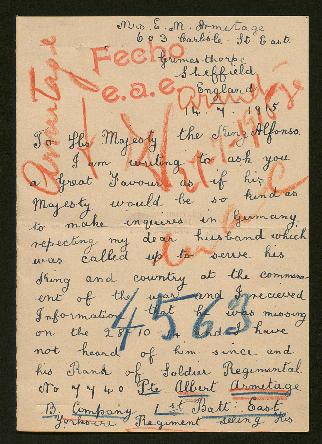 Mrs. E. M. Armitage
603 Carlisle St East.
Fecho
Grimesthorpe
Sheffield
e.a.e.
England
Armitage
Armitage
14. 7. 1915
To His Majesty the King Alfonso.
I am writing to ask you
a Great Favour as if his
Majesty would be so kind as
to make inquires in Germany
respecting my dear husband which
was called up to serve his
King and country at the commens-
ent of the war and I received
Information that he was missing
4563
on the 28-10-14 and have
not heard of him since and
his Rank of Soldier Regimental
No 7740 Pte Albert Armitage
B Company 1st Batt East
Yorkshire Regiment seeing his